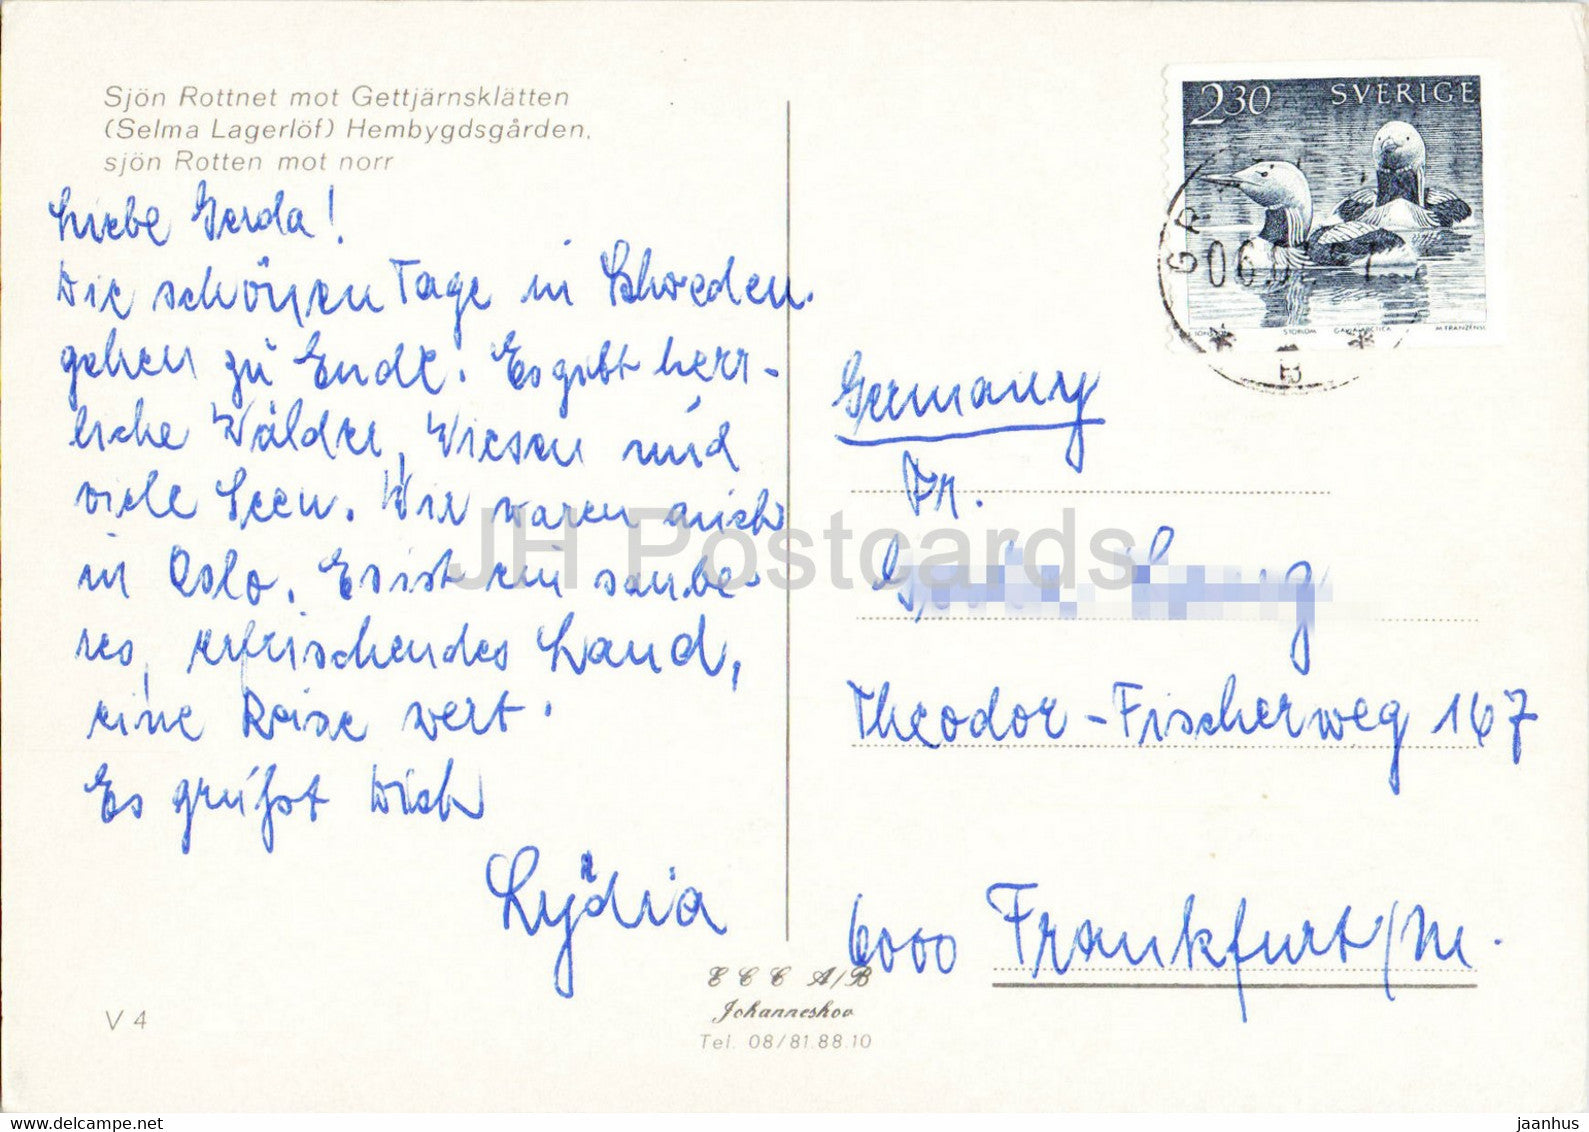 Sjön Rottnet mot Gettjärnsklätten
(Selma Lagerlöf) Hembygdsgården,
sjön Rotten mot norr
Liebe Gerda!
Die schönen Tage in Schweden
gehen zu Ende. Es gibt herr-
liche Wälder, Wiesen und
viele Seen. Wir waren auch
in Oslo. Es ist ein saube-
res, erfrischendes Land,
eine Reise wert.
Es grüßt Dich
Lydia
V 4
E C C A/B
Johanneshov
Tel. 08/81.88.10
2.30 SVERIGE
STORLOM GAVIA ARCTICA M. FRANZÉN SC
GR
06.0
B
Germany
Fr.
Theodor-Fischerweg 167
6000 Frankfurt/M.
JH Postcards
www.delcampe.net
jaanhus